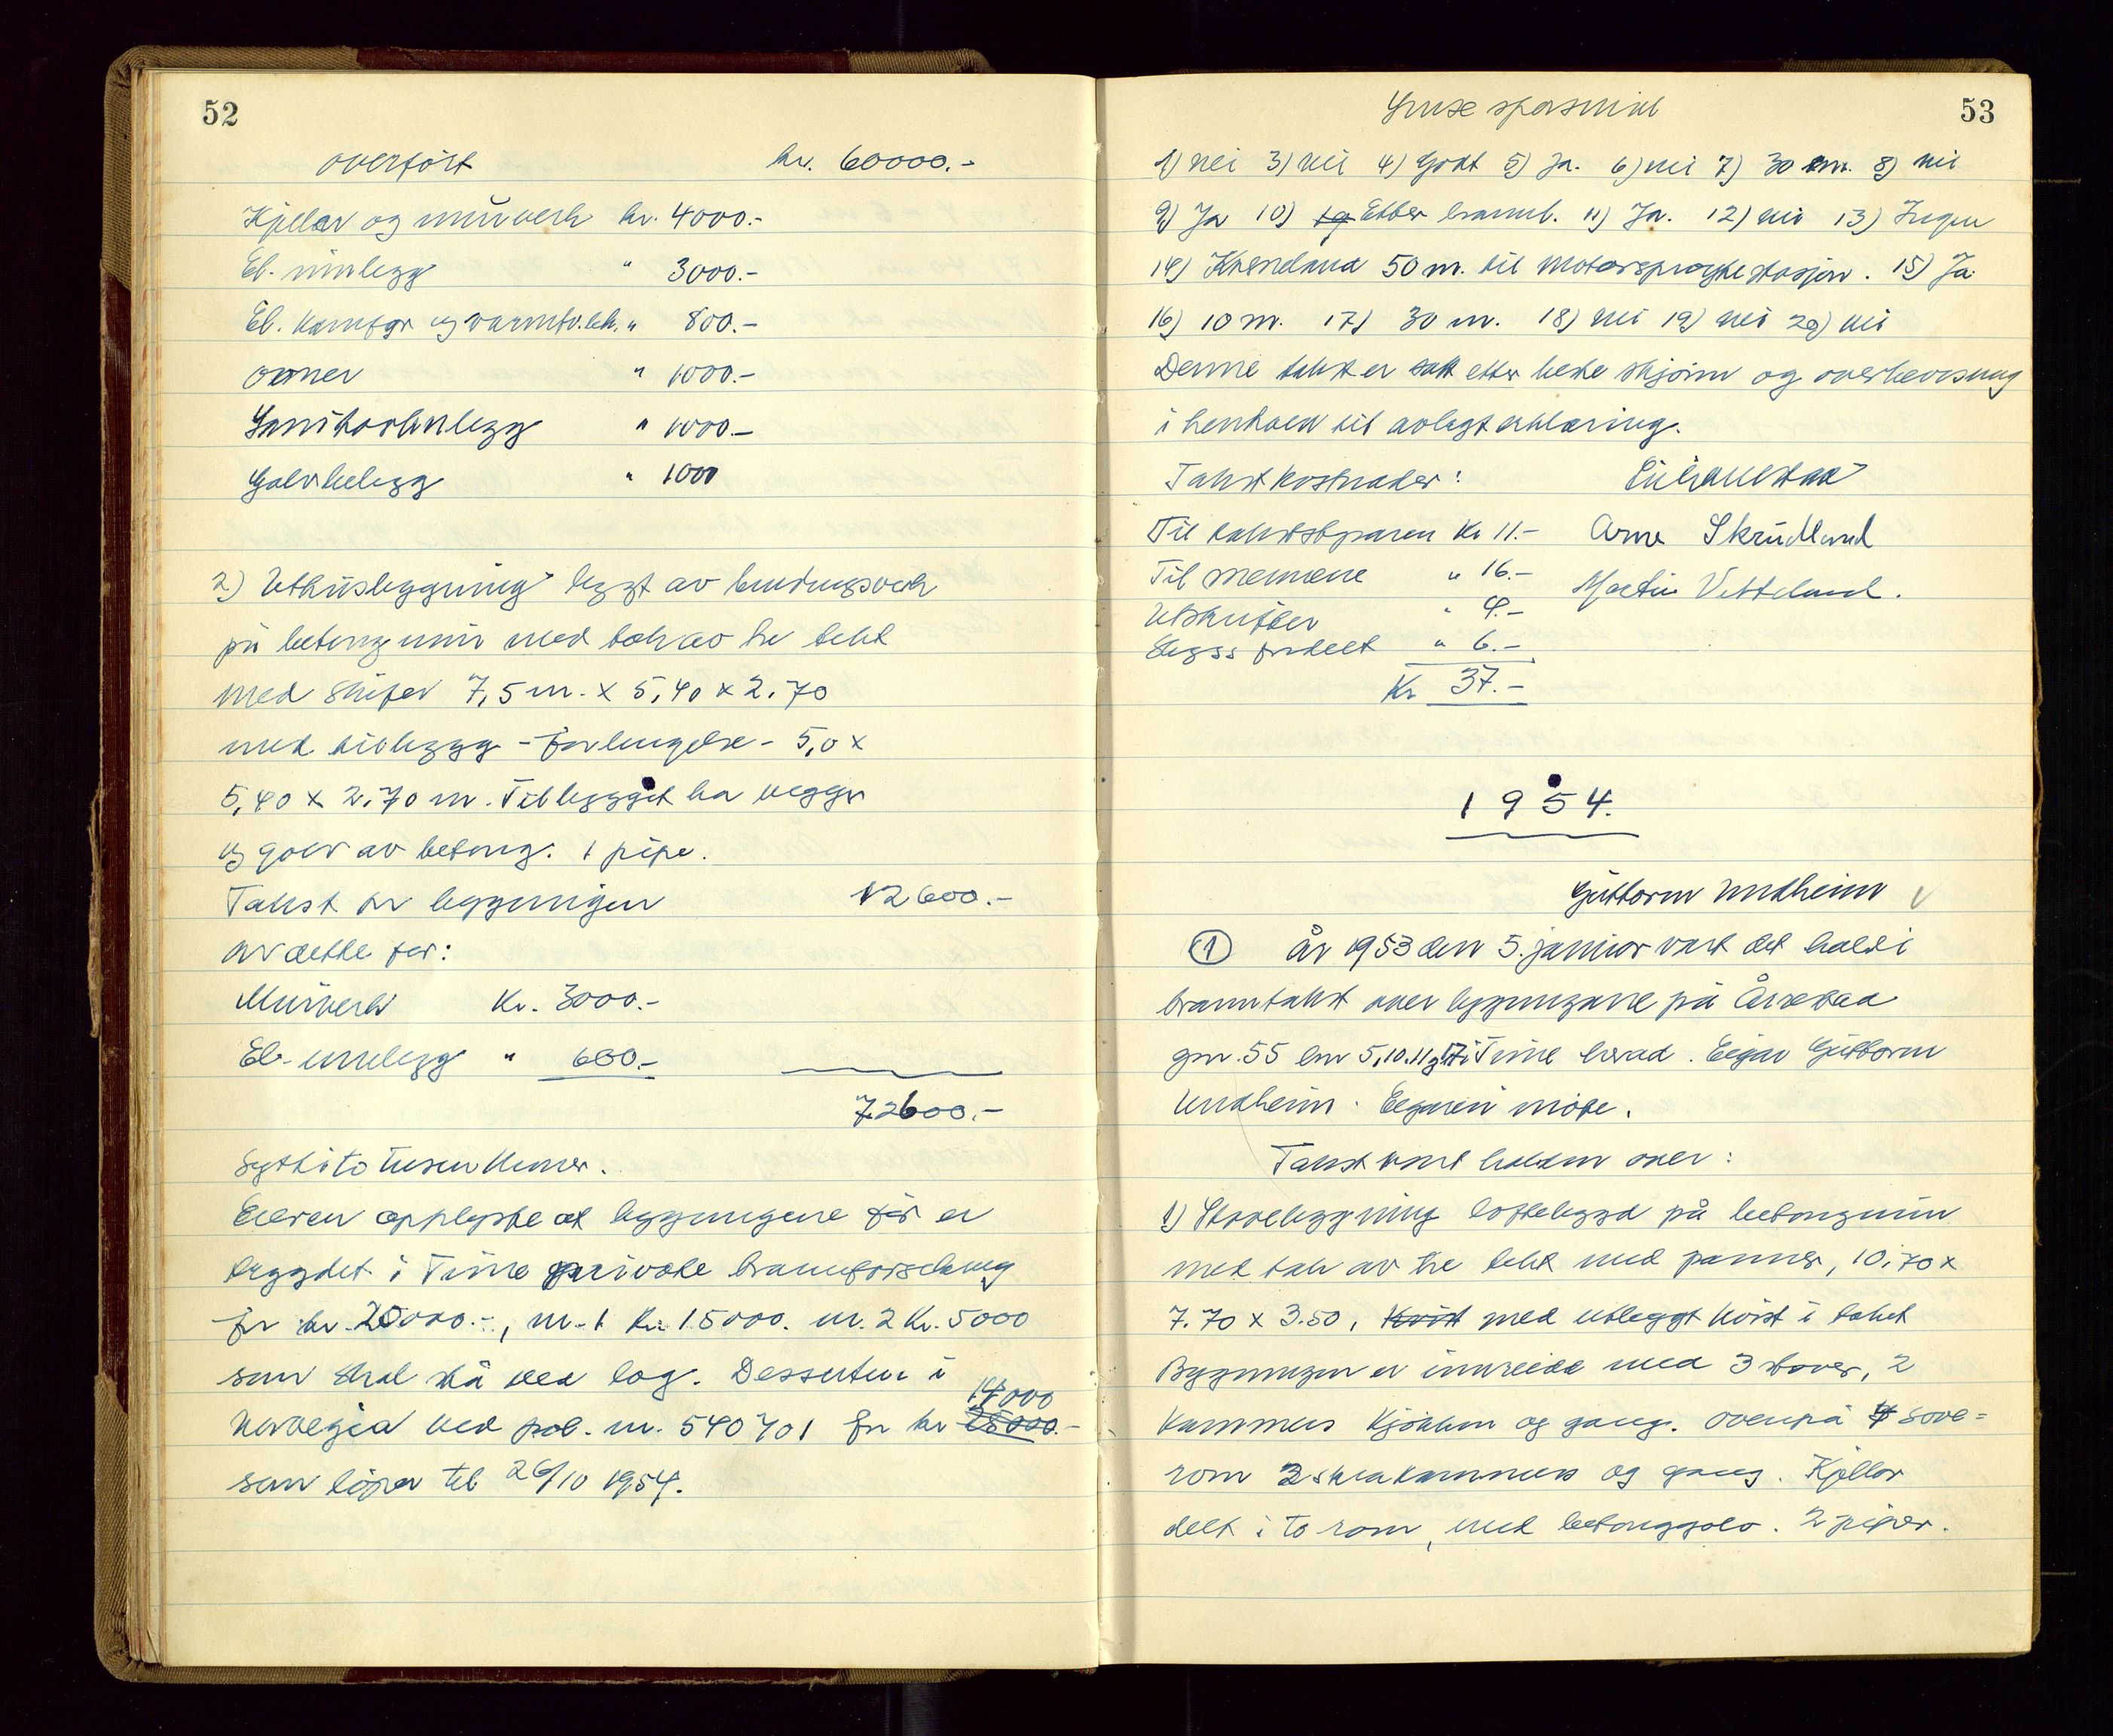 52
overført kr. 60000.-
Kjellar og murverk kr. 4000.-
El. innlegg " 3000.-
El. komfyr og varmtv.ber. " 800.-
ovner " 1000.-
Sanitæranlegg " 1000.-
Golvbelegg " 1000
2) Uthusbygning bygt av bindingsverk
på betongmur med tak av tre tekt
med skifer 7,5 m. x 5,40 x 2.70
med tilbygg - forlengelse - 5,0 x
5,40 x 2.70 m. Tilbygget har vegger
og golv av betong. 1 pipe.
Takst for bygningen 12600.-
av dette for:
Murverk Kr. 3000.-
El. innlegg " 600.-
72600.-
Syttito tusen kroner.
Eieren opplyste at bygningene før er
trygdet i Time private brannforsikring
for kr. 20000.-, nr. 1 Kr. 15000. nr. 2 Kr. 5000
som skal stå ved lag. Dessuten i
14000
Norvegia ved pol. nr. 540701 for kr 28000.-
som løper til 26/10 1954.
53
Gruse spørsmål
1) nei 3) nei 4) Godt 5) Ja. 6) nei 7) 30 m. 8) nei
9) Ja 10) Etter brannl. 11) Ja. 12) nei 13) Ingen
14) Kverneland 50 m. til Motorsprøytestasjon. 15) Ja
16) 10 m. 17) 30 m. 18) nei 19) nei 20) nei
Denne takst er satt etter beste skjønn og overbevisning
i henhold til avlagt erklæring.
Takstkostnader:
Til takstbestyraren Kr 11.- Arne Skrudland
Til mennene " 16.- Martin Vetteland.
Utskrifter " 4.-
Skyss fordelt " 6.-
Kr 37.-
1954.
Guttorm Undheim
1 År 1953 den 5. januar vart det haldi
branntakst over bygningane på Årrestad
gnr. 55 bnr 5, 10. 11 og 17 i Time herad. Eigar Guttorm
Undheim. Eigaren møtte.
Takst vart halden over:
1) Stovebygning loftebygd på betongmur
med tak av tre tekt med panner, 10.70 x
7.70 x 3.50, Kvist med utbygt kvist i taket
Bygningen er innreidd med 3 stover, 2
kammers kjøkken og gang. ovenpå 4 sove=
rom 2 skråkammers og gang. Kjellar
delt i to rom, med betonggolv. 2 piper.